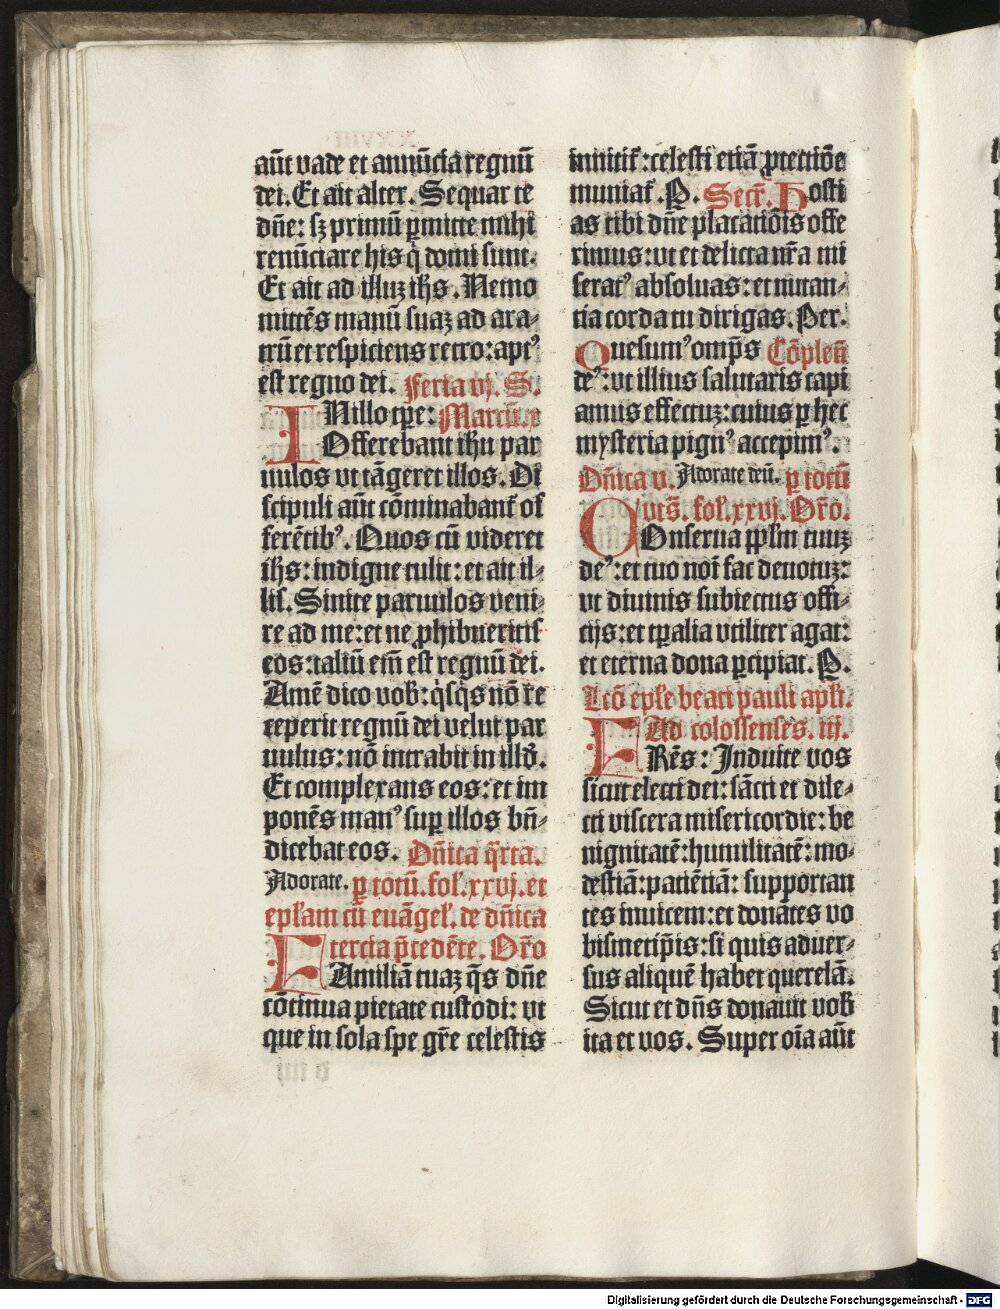 aūt vade et annūcia regnū
dei. Et ait alter. Sequar te
dn̄e: sꝫ primū ꝑmitte mihi
renūciare his q̇ domi sunt.
Et ait ad illuꝫ ih̄s. Nemo
mittēs manū suaꝫ ad ara-
trū et respiciens retro: apt᾽
est regno dei. Feria vj. S.
IN illo tp̄e: Marcū. x
Offerebant ih̄u par
uulos vt tāgeret illos. Di
scipuli aūt cōminabant᷑ of
ferētib᾽. Quos cū videret
ih̄s: indigne tulit: et ait il-
lis. Sinite paruulos veni-
re ad me: et ne ꝓhibueritis
eos: taliū em̄ est regnū dei.
Amē dico vob̄: q̇sq̇s nō re
ceperit regnū dei velut par
uulus: nō intrabit in illd̄.
Et complexans eos: et im
ponēs man᾽ suꝑ illos bn̄-
dicebat eos. Dn̄ica q̄rta.
Adorate. ꝑ totū. fol̄. xxvj. et
epl̄am cū euāgel̄. de dn̄ica
tercia p̄cedēte. Or̄o
FAmiliā tuaꝫ q̄s dn̄e
cōtinua pietate custodi: vt
que in sola spe gr̄e celestis
innitit᷑: celesti etiā ꝓtectiōe
muniat᷑. P. Secr̄. Hosti
as tibi dn̄e placatiōis offe
rimus: vt et delicta nr̄a mi
serat᾽ absoluas: et nutan-
tia corda tu dirigas. Per.
Quesum᾽ omp̄s Cōplen̄
de᾽: vt illius salutaris capi
amus effectuꝫ: cuius ꝑ hec
mysteria pign᾽ accepim᾽.
Dn̄ica v. Adorate deū. ꝑ totū
vts̄. fol̄. xxvj. Or̄o.
COnserua ppl̄m tuuꝫ
de᾽: et tuo noī fac deuotuꝫ:
vt diuinis subiectus offi-
cijs: et tp̄alia vtiliter agat:
et eterna dona ꝑcipiat. P.
Lc̄o epl̄e beati pauli apl̄i.
Ad colossenses. iij.
FRēs: Induite vos
sicut electi dei: sācti et dile-
cti viscera misericordie: be
nignitatē: humilitatē: mo-
destiā: patiētiā: supportan
tes inuicem: et donātes vo
bismetip̄is: si quis aduer-
sus aliquē habet querelā.
Sicut et dn̄s donauit vob̄
ita et vos. Super oīa aūt
Digitalisierung gefördert durch die Deutsche Forschungsgemeinschaft - DFG